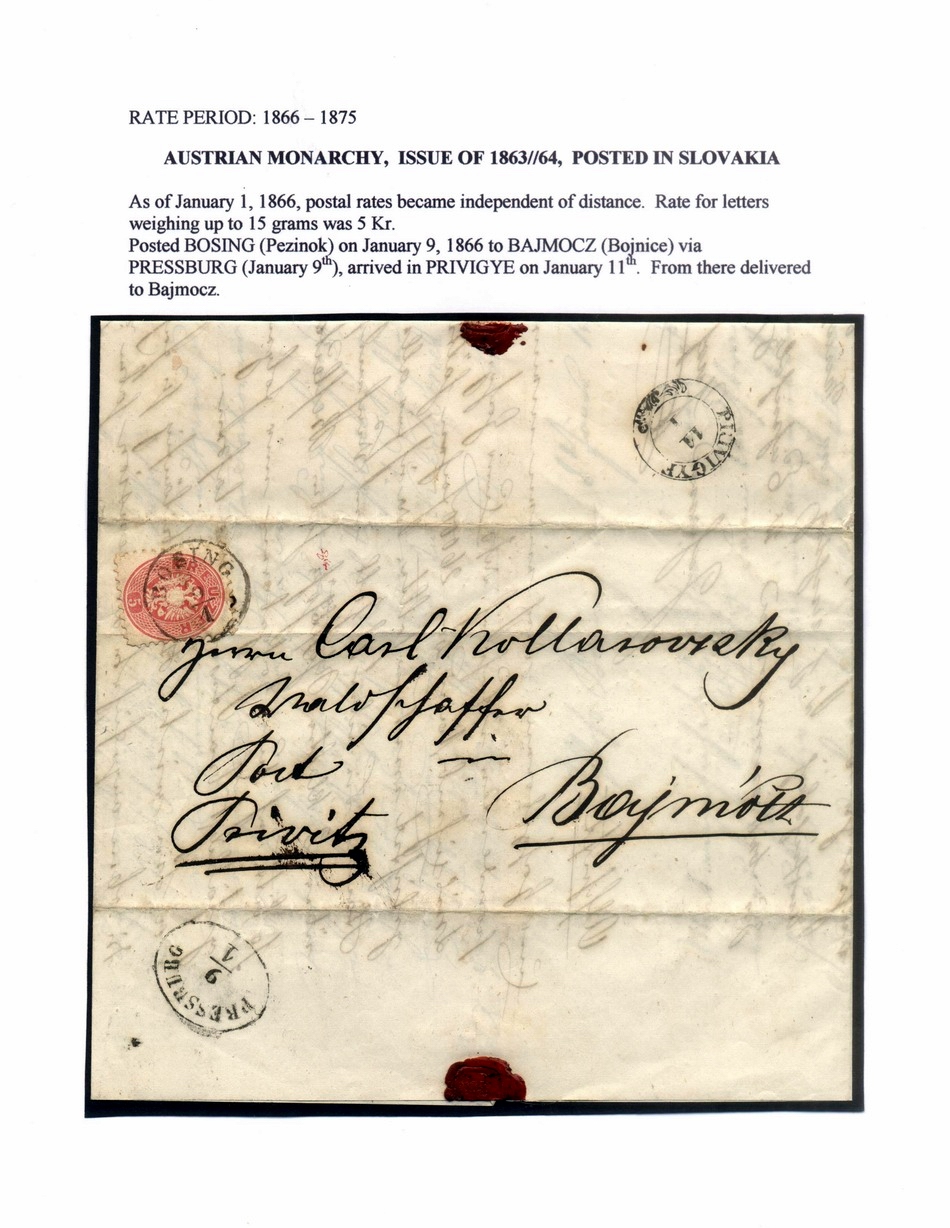 RATE PERIOD: 1866 – 1875
AUSTRIAN MONARCHY, ISSUE OF 1863//64, POSTED IN SLOVAKIA
As of January 1, 1866, postal rates became independent of distance. Rate for letters
weighing up to 15 grams was 5 Kr.
Posted BOSING (Pezinok) on January 9, 1866 to BAJMOCZ (Bojnice) via
PRESSBURG (January 9th), arrived in PRIVIGYE on January 11th. From there delivered
to Bajmocz.
PRIVIGYE
11
1
BÖSING
5
Herrn Carl Kollarovszky
Waldschaffer
Post in
Privitz Bajmótz
PRESSBURG
9/1